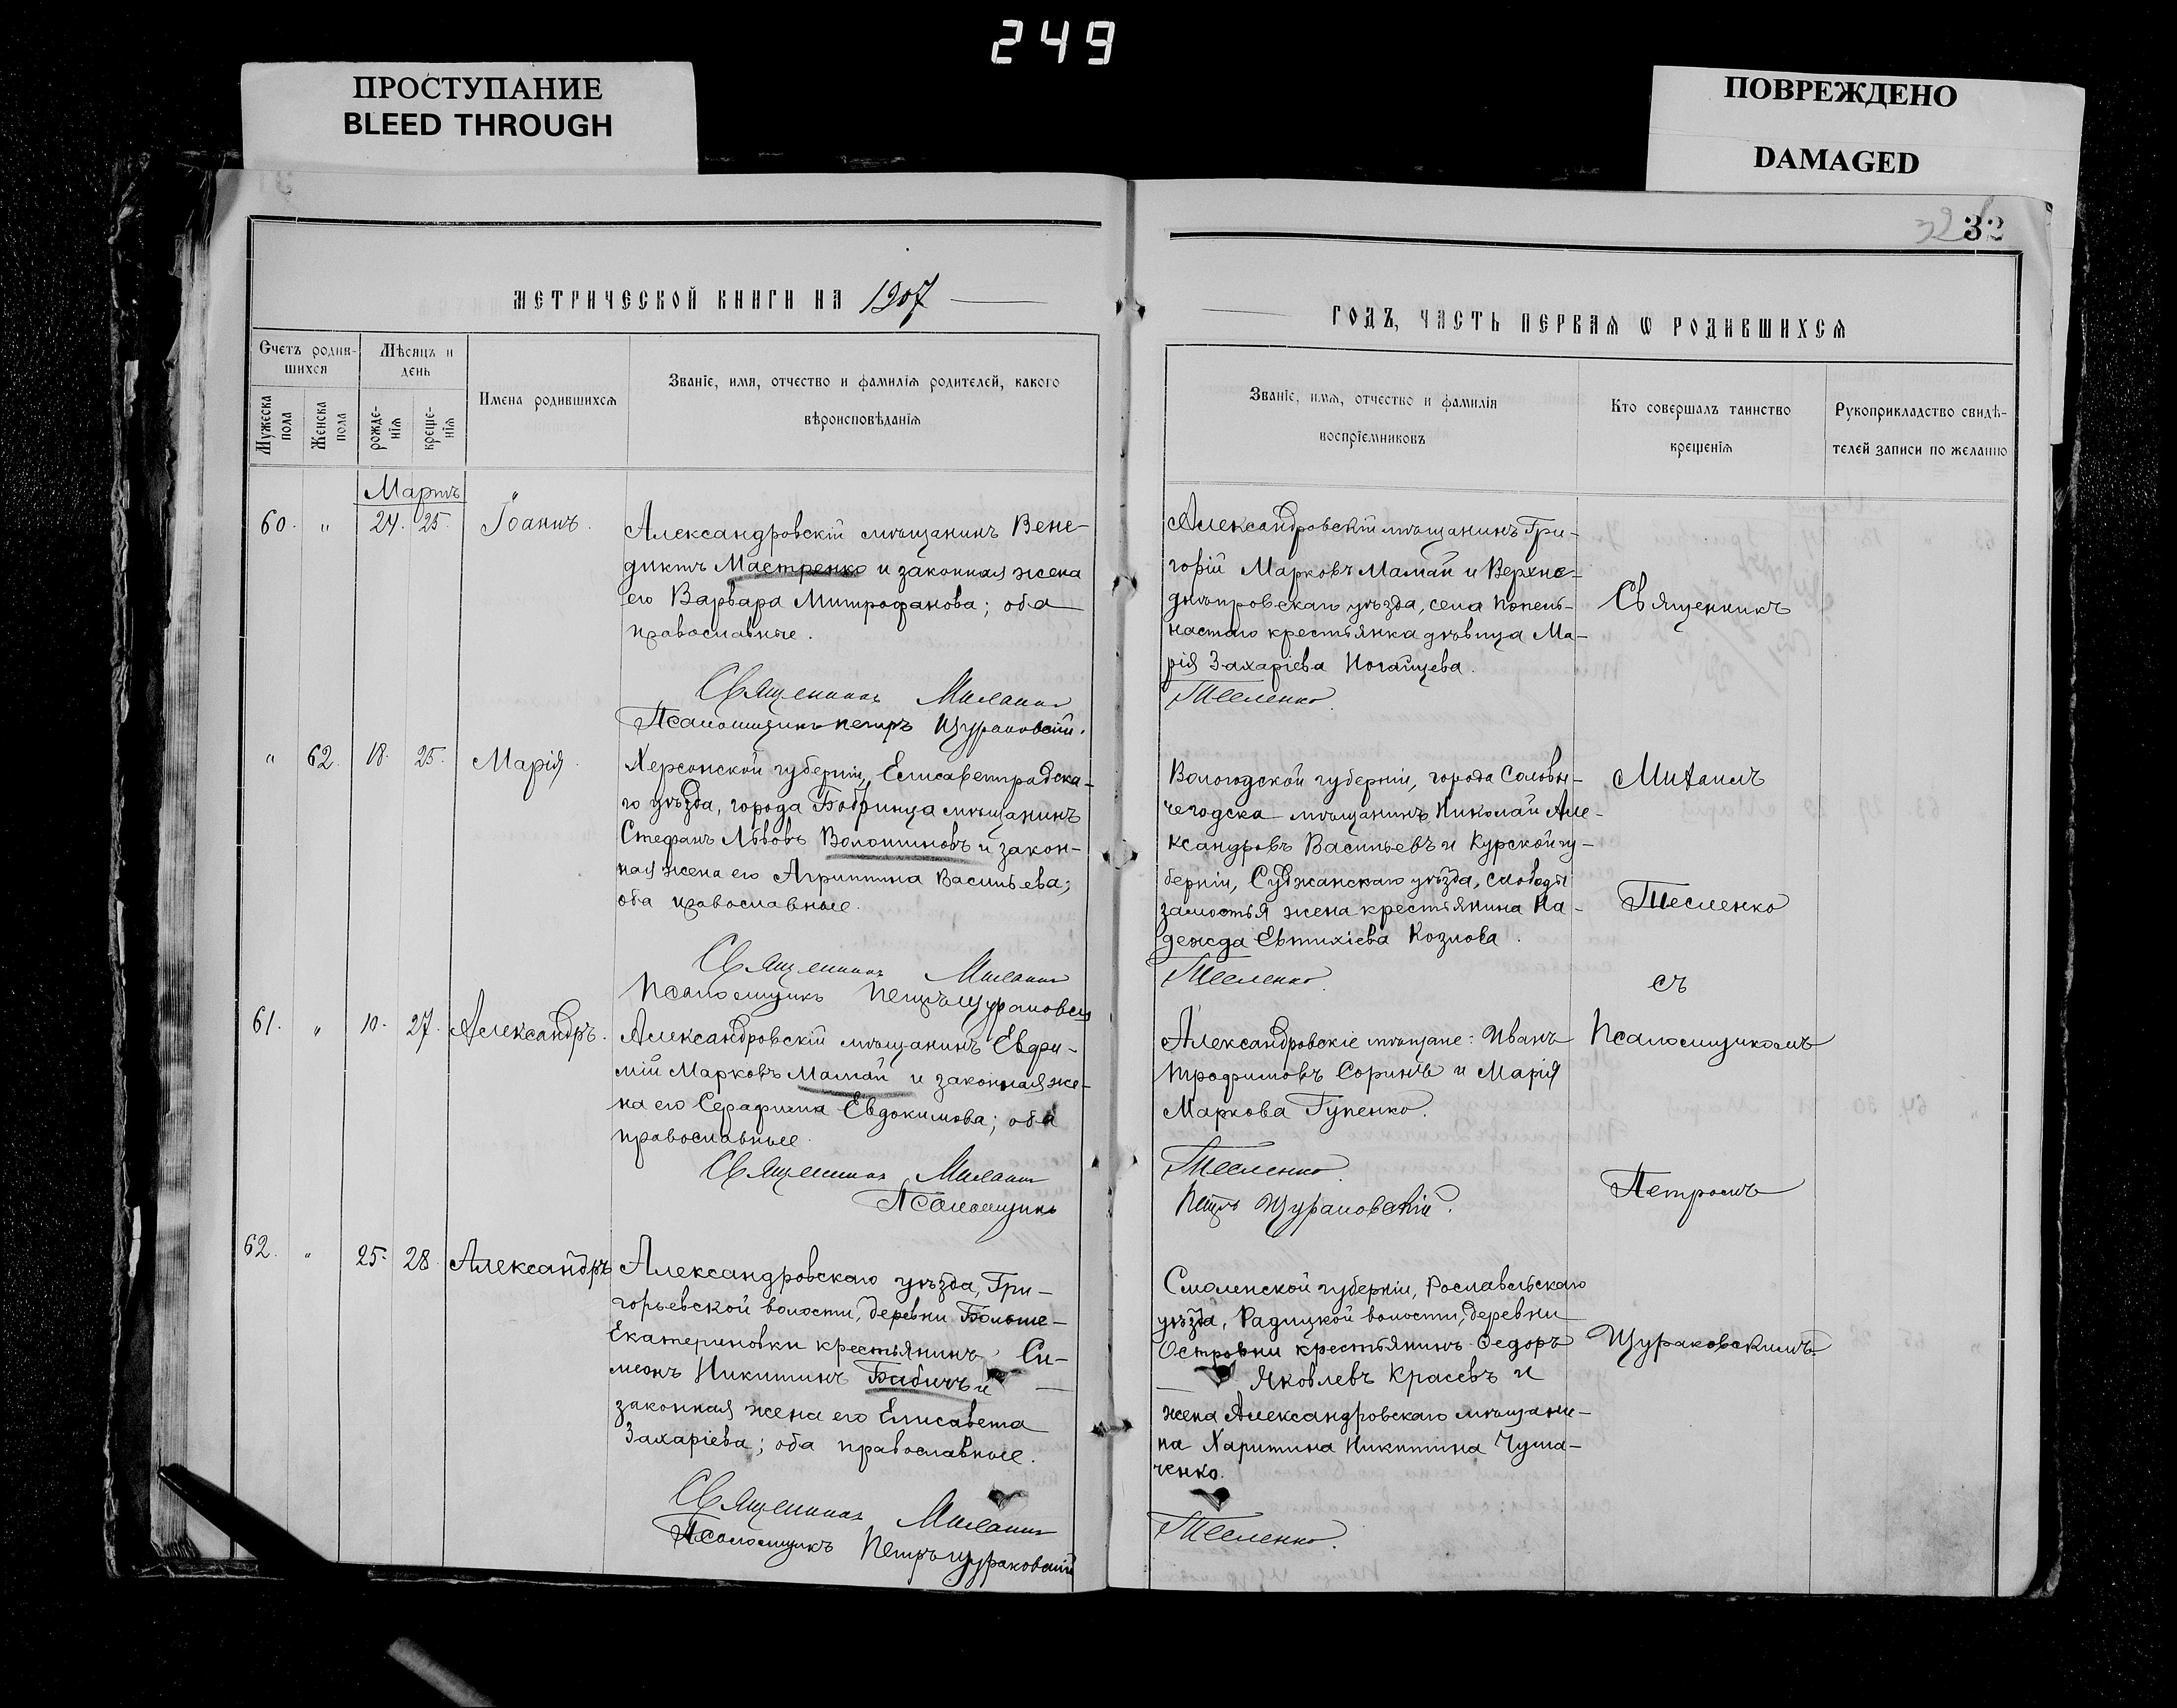 249
ПРОСТУПАНИЕ
BLEED THROUGH
ПОВРЕЖДЕНО
DAMAGED
32 32
МЕТРИЧЕСКОЙ КНИГИ НА 1907
ГОДЪ, ЧАСТЬ ПЕРВАѦ Ѡ РОДИВШИХСѦ
Счетъ родив-
шихся
Мужеска
пола
Женска
пола
Мѣсяцъ и
день
рожде-
нія
креще-
нія
Имена родившихсѧ
Званіе, имя, отчество и фамиліѧ родителей, какого
вѣроисповѣданіѧ
Званіе, имѧ, отчество и фамилія
воспріемниковъ
Кто совершалъ таинство
крещеніѧ
Рукоприкладство свидѣ-
телей записи по желанию
Мартъ
60. " 24. 25. Іоаннъ.
Александровскій мѣщанинъ Вене-
диктъ Мастренко и законная жена
его Варвара Митрофанова; оба
православные.
Священникъ Михаилъ
Псаломщикъ Петръ Щураковскій.
Александровскій мѣщанинъ Гри-
горій Марковъ Мамай и Верхне-
днѣпровскаго уѣзда, села Попель-
настаго крестьянка дѣвица Ма-
рія Захаріева Ногайцева.
Тесленко.
Священникъ
" 62. 18. 25. Марія.
Херсонской губерніи, Елисаветградска-
го уѣзда, города Бобринца мѣщанинъ
Стефанъ Львовъ Волошиновъ и закон-
ная жена его Агриппина Васильева;
оба православные.
Священникъ Михаилъ
Псаломщикъ Петръ Щураковскій
Вологодской губерніи, города Сольвы-
чегодска мѣщанинъ Николай Але-
ксандровъ Васильевъ и Курской гу-
берніи, Суджанскаго уѣзда, слободы
Замостья жена крестьянина На-
дежда Евтихіева Козлова.
Тесленко.
Михаилъ
Тесленко
съ
61. " 10. 27. Александръ.
Александровскій мѣщанинъ Евфи-
мій Марковъ Мамай и законная же-
на его Серафима Евдокимова; оба
православные.
Священникъ Михаилъ
Псаломщикъ
Александровскіе мѣщане: Иванъ
Трофимовъ Соринъ и Марія
Маркова Гупенко.
Тесленко.
Петръ Щураковскій.
Псаломщикомъ
Петромъ
62. " 25. 28. Александръ
Александровскаго уѣзда, Гри-
горьевской волости, деревни Больше-
Екатериновки крестьянинъ Си-
меонъ Никитинъ Бабичъ и
законная жена его Елисавета
Захаріева; оба православные.
Священникъ Михаилъ
Псаломщикъ Петръ Щураковскій
Смоленской губерніи, Рославльскаго
уѣзда, Радицкой волости, деревни
Островки крестьянинъ Ѳедоръ
Яковлевъ Красевъ и
жена Александровскаго мѣщани-
на Харитина Никитина Чума-
ченко.
Тесленко.
Щураковскимъ.